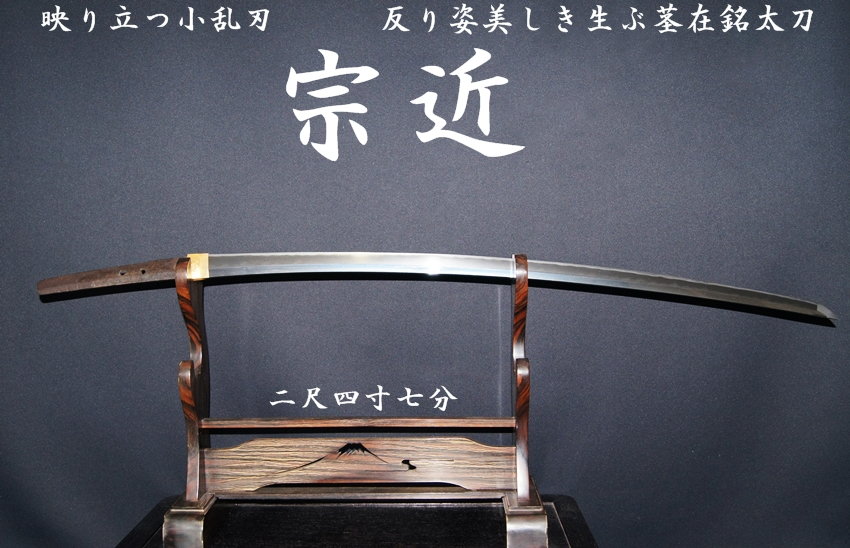 映り立つ小乱刃 反り姿美しき生ぶ茎在銘太刀
宗近
二尺四寸七分